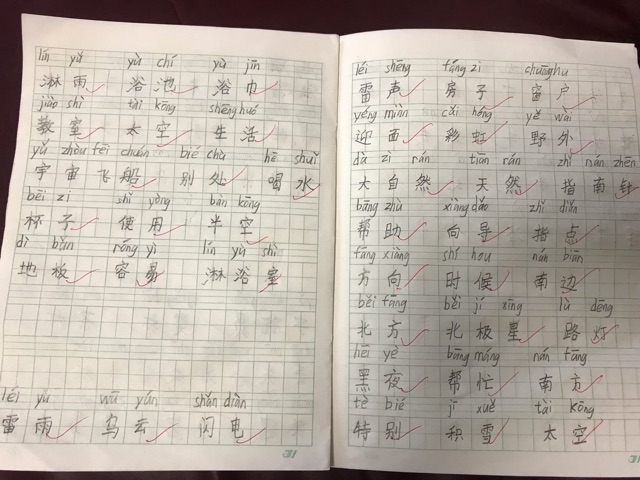 lín yǔ yù chí yù jīn
淋雨 浴池 浴巾
jiào shì tài kōng shēng huó
教室 太空 生活
yǔ zhòu fēi chuán bié chù hē shuǐ
宇宙飞船 别处 喝水
bēi zi shǐ yòng bàn kōng
杯子 使用 半空
dì bǎn róng yì lín yù shì
地板 容易 淋浴室
léi yǔ wū yún shǎn diàn
雷雨 乌云 闪电
31
léi shēng fáng zi chuāng hu
雷声 房子 窗户
yíng miàn cǎi hóng yě wài
迎面 彩虹 野外
dà zì rán tiān rán zhǐ nán zhēn
大自然 天然 指南针
bāng zhù xiàng dǎo zhǐ diǎn
帮助 向导 指点
fāng xiàng shí hou nán biān
方向 时候 南边
běi fāng běi jí xīng lù dēng
北方 北极星 路灯
hēi yè bāng máng nán fāng
黑夜 帮忙 南方
tè bié jī xuě tài kōng
特别 积雪 太空